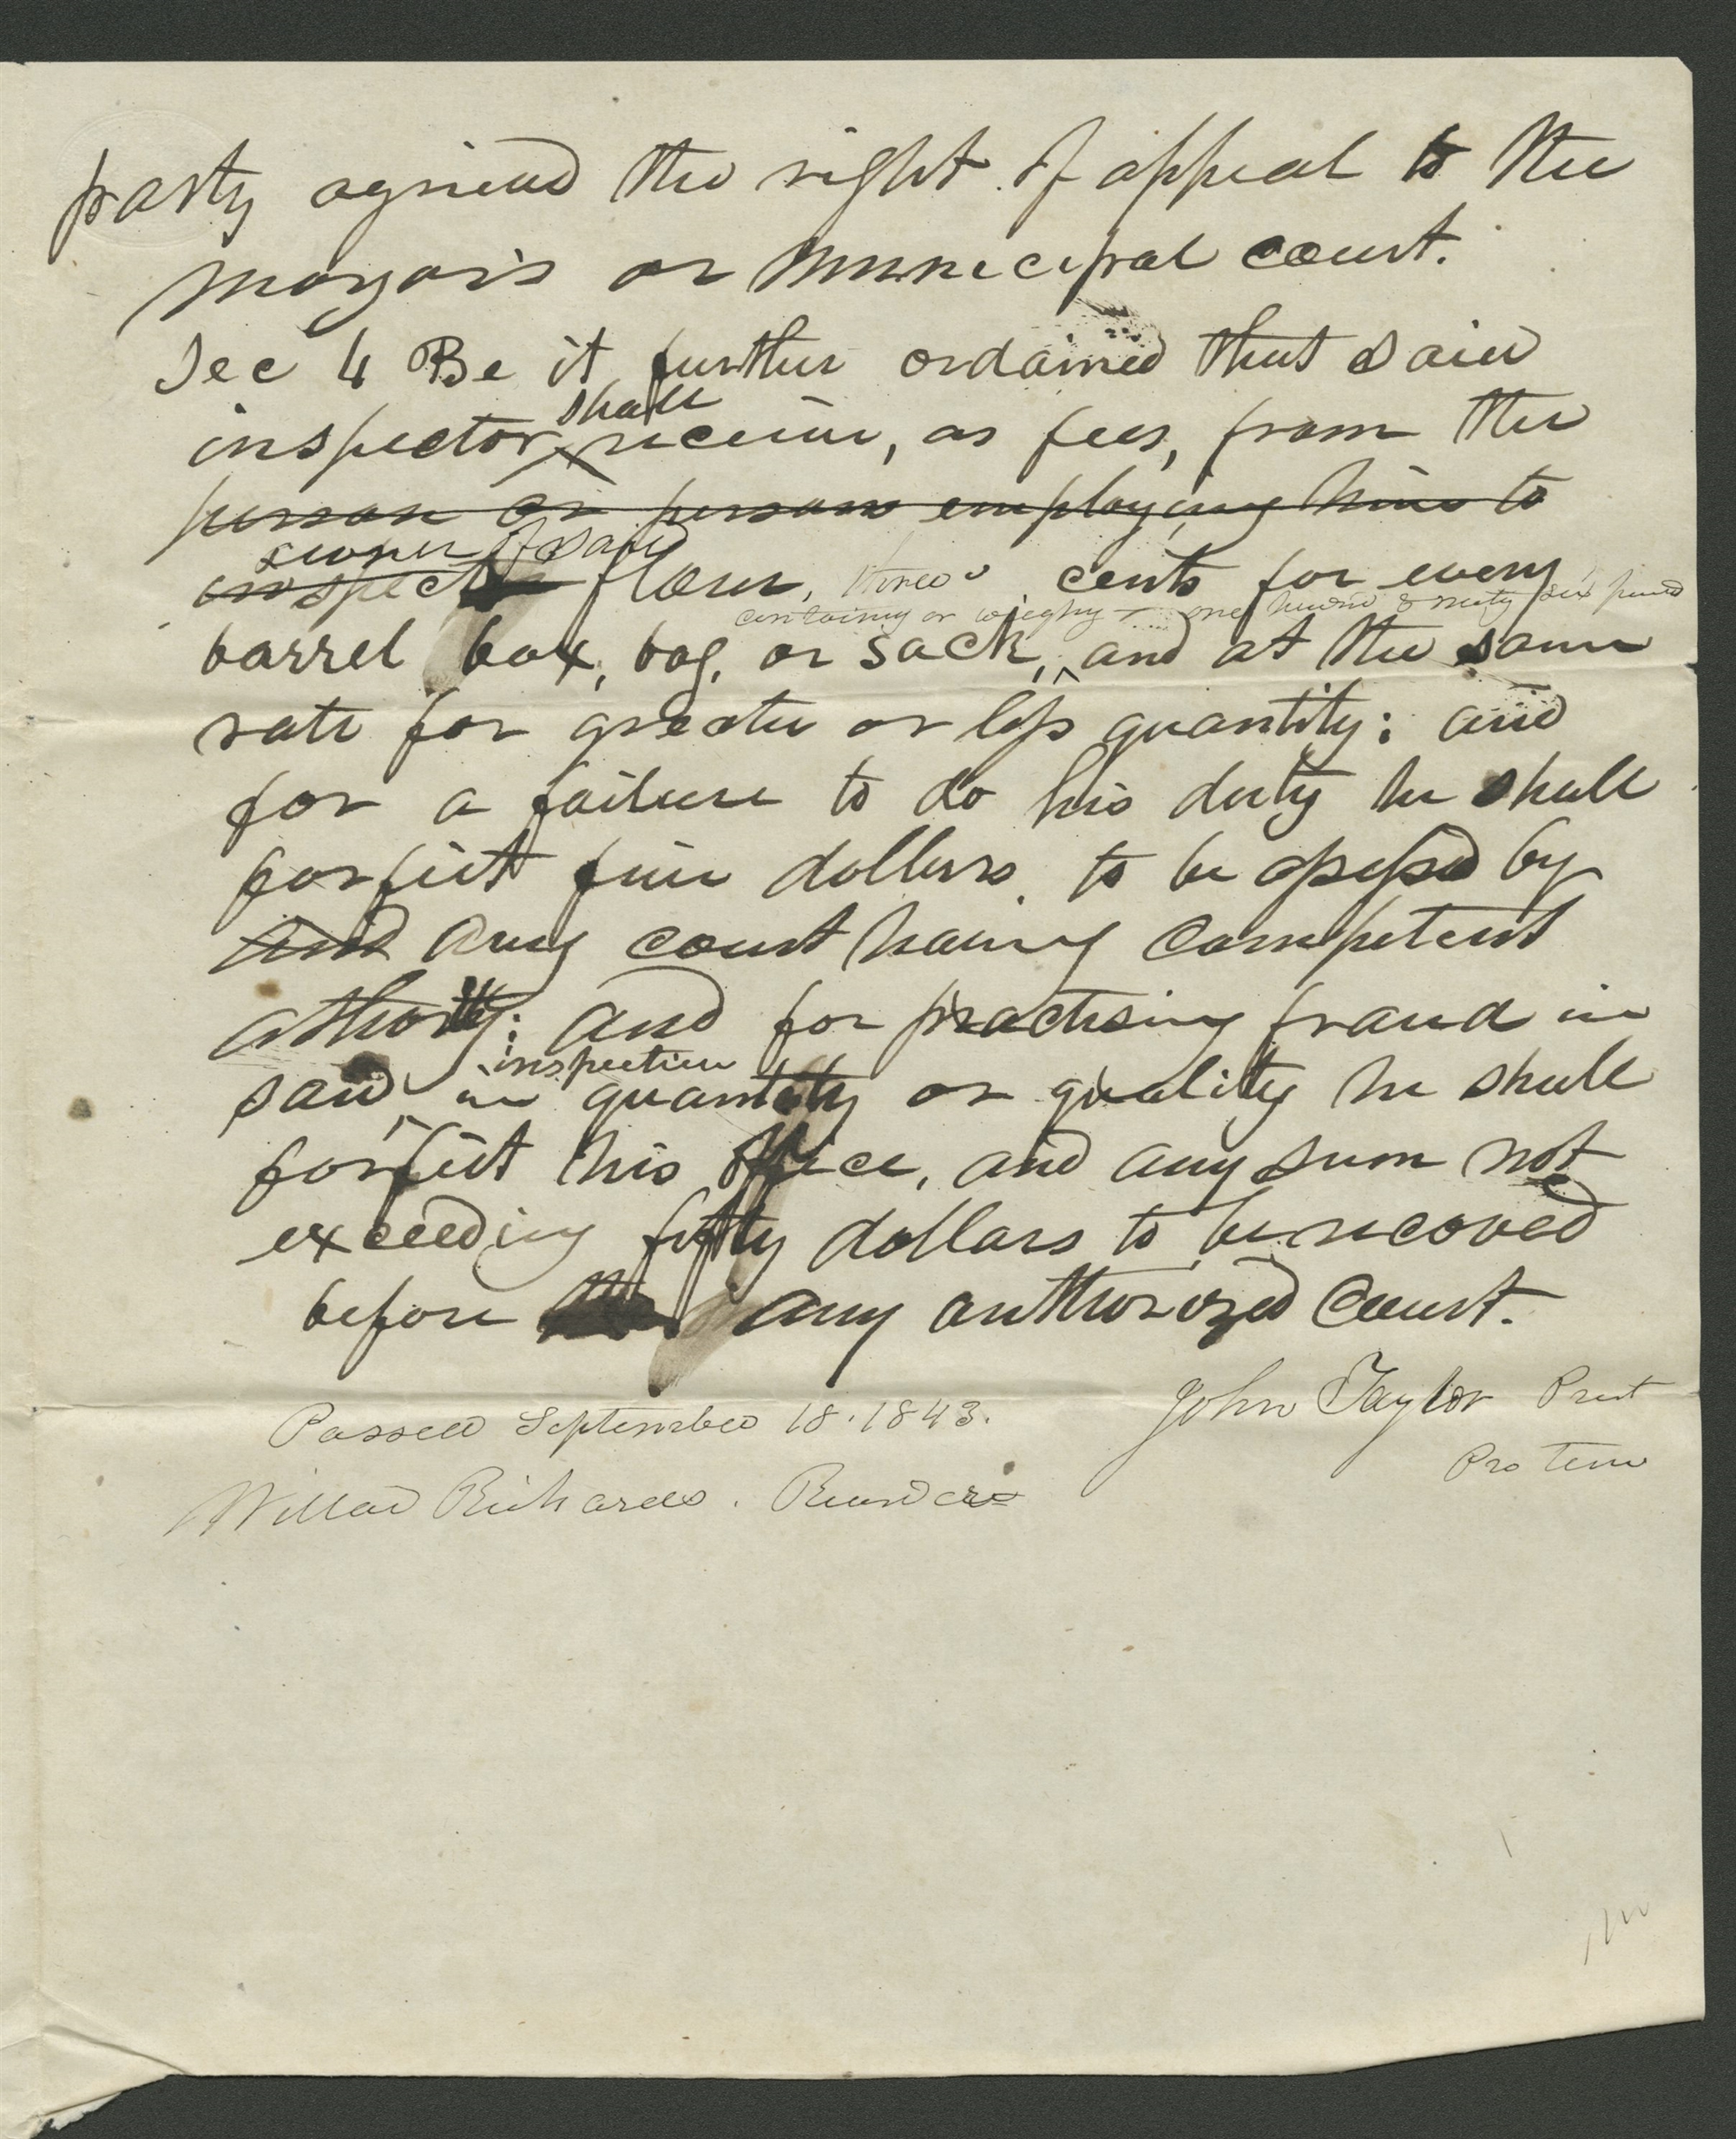 party agrieved the right of appeal to the
mayor's or Municipal court.
Sec 4 Be it further ordained that said
shall
inspector receive, as fees, from the
person or persons employing him to
owner of said
inspect flour, three cents for every
containing or weighing one hundred & ninety six pound
barrel box, bag, or sack, and at the same
rate for greater or less quantity: and
for a failure to do his duty he shall
forfeit five dollars to be assessed by
and any court having competent
athority: and for practising fraud in
inspection
said in quantity or quality he shall
forfeit his office, and any sum not
exceeding fifty dollars to be recoved
before any authorized Court.
John Taylor Prest
Passed September 18. 1843.
Pro Tem
Willard Richards. Recorder